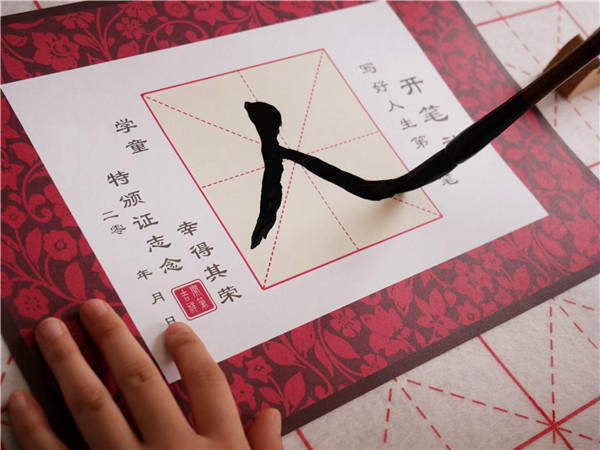 开笔
写好人生第笔
人
学童 幸得其荣
特颁证志念
二零 年 月 日